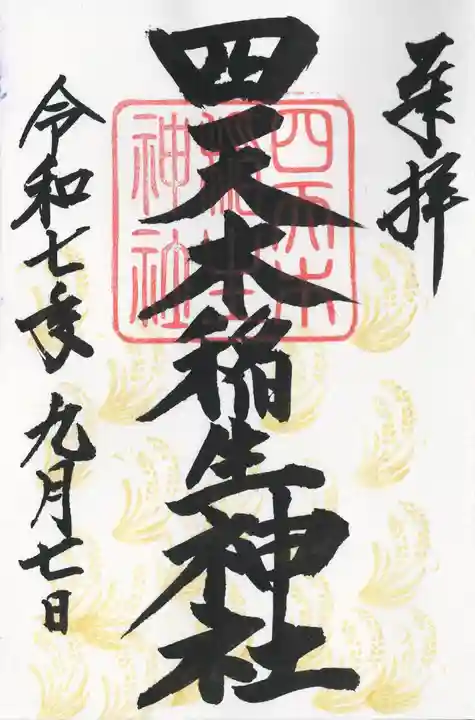 奉拝
四天木稲生神社
四天木
稲生
神社
令和七年 九月七日